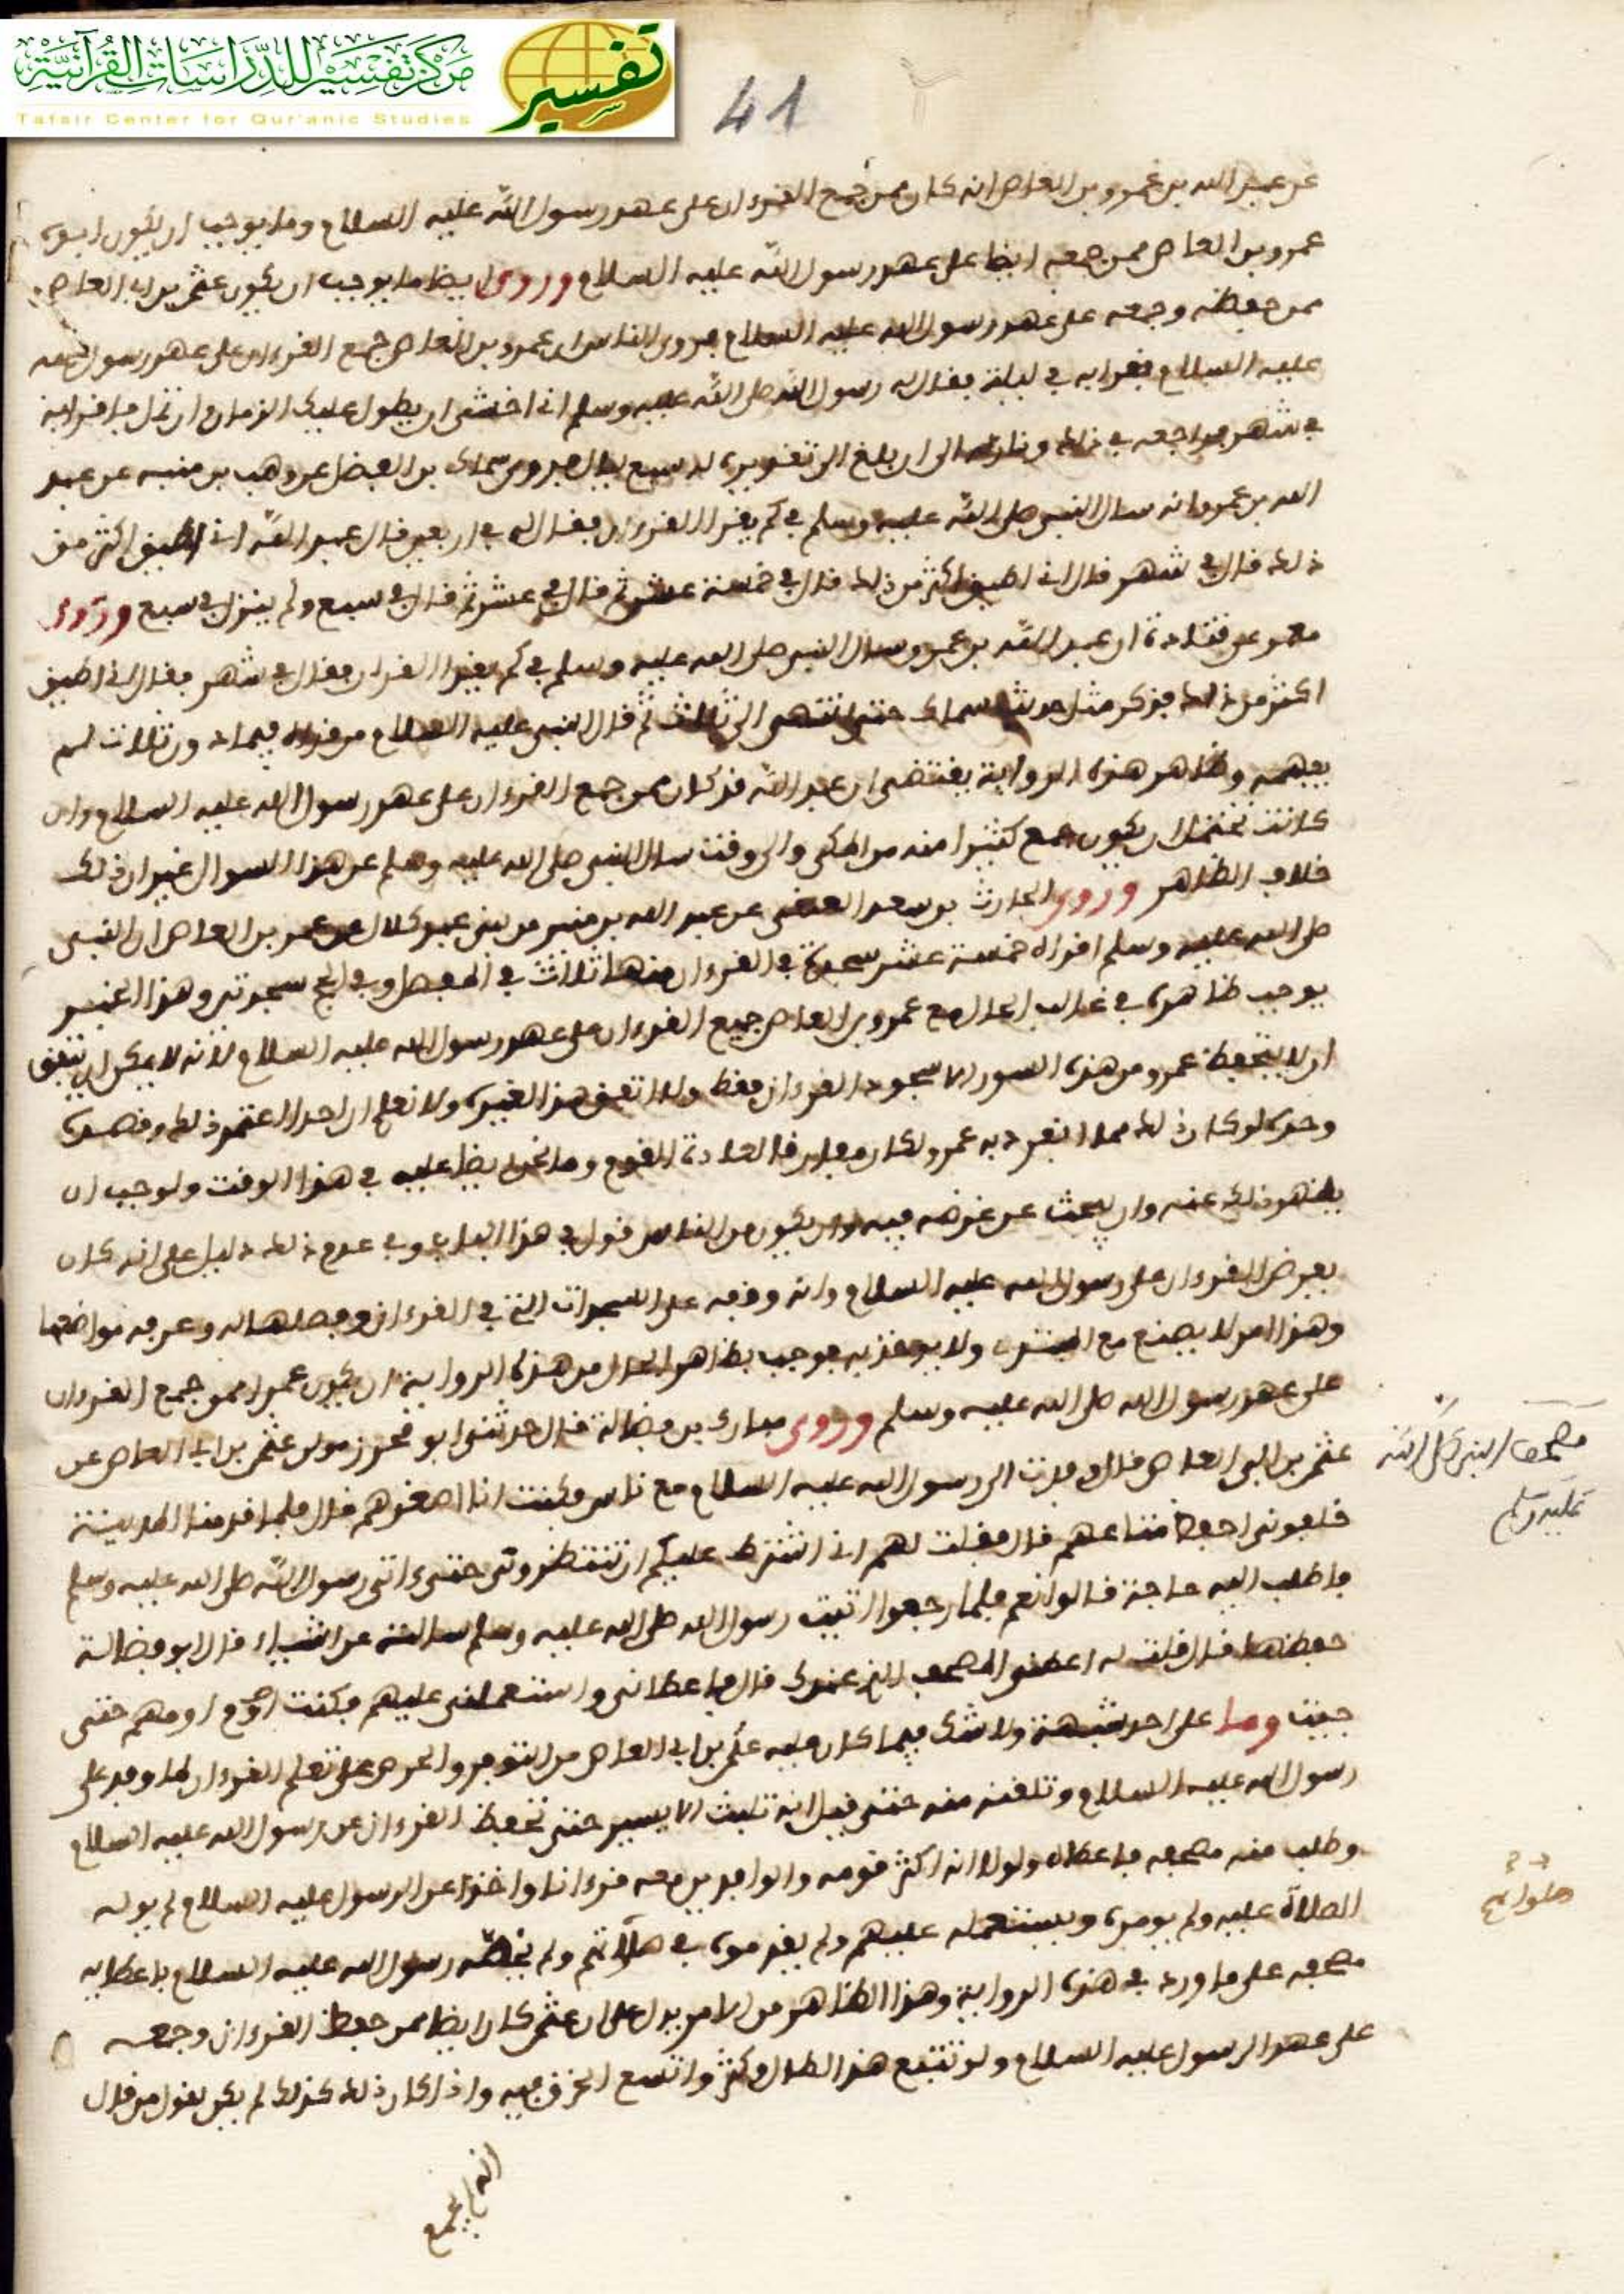 مركز تفسير للدراسات القرآنية
Tafsir Center for Qur'anic Studies
تفسير
41
عن عبد الله بن عمرو بن العاص انه كان ممن جمع القرءان على عهد رسول الله عليه السلام وما يوجب ان يكون ابوه
عمرو بن العاص ممن جمعه ايضا على عهد رسول الله عليه السلام وروى ايضا ما يوجب ان يكون عثمن بن ابي العاص
ممن حفظه وجمعه على عهد رسول الله عليه السلام فروى الناس ان عمرو بن العاص جمع القرءان على عهد رسول الله
عليه السلام فقرا به في ليلة فقال له رسول الله صلى الله عليه وسلم اني اخشى ان يطول عليك الزمان وان تمل فاقرا به
في شهر فراجعه في ذلك الى ان بلغ الى تقديره له سبع ليال فروى سماك بن الفضل عن وهب بن منبه عن عبد
الله بن عمرو انه سال النبي صلى الله عليه وسلم في كم يقرا القرءان فقال له في اربعين قال عبد الله اني اطيق اكثر من
ذلك قال في شهر قال اني اطيق اكثر من ذلك قال في خمسة عشر ثم قال في عشر ثم قال في سبع ولم ينزل في سبع وروى
معمر عن قتادة ان عبد الله بن عمرو سال النبي صلى الله عليه وسلم في كم يقرا القران فقال في شهر فقال اني اطيق
اكثر من ذلك فذكر مثل حديث سماك حتى انتهى الى ثلاث ثم قال النبي عليه السلام من قراه فيما دون ثلاث لم
يفهمه وظاهر هذه الرواية يقتضي ان عبد الله قد كان ممن جمع القرءان على عهد رسول الله عليه السلام وان
كانت تحتمل ان يكون جمع كثيرا منه من المكي والى وقت سال النبي صلى الله عليه وسلم عن هذا السوال غير ان ذلك
خلاف الظاهر وروى الحارث بن سعد العتقي عن عبد الله بن منير من بني عبد كلال عن عمرو بن العاص ان النبي
صلى الله عليه وسلم اقراه خمسة عشر سجدة في القرءان منها ثلاث في المفصل وفي الحج سجدتين وهذا الخبر
يوجب ظاهره في غالب الحال جمع عمرو بن العاص جميع القرءان على عهد رسول الله عليه السلام لانه لا يمكن ان يتفق
ان لا يتحفظ عمرو من هذه السور الا سجود القرءان فقط ولا اتفق هذا لغيره ولا نعلم ان احدا اعتمد ذلك وقصده
وحده لو كان ذلك مما انفرد به عمرو لكان مفارقا لعادة القوم وما نحن ايضا عليه في هذا الوقت ولوجب ان
يظهر ذلك عنه وان يبحث عن غرضه فيه وان يكون من الناس قول في هذا الباب وفي عدم ذلك دليل على انه كان
يعرض القرءان على رسول الله عليه السلام وانه وقفه على السجدات التي في القرءان وفصلها له وعرفه مواضعها
وهذا امر لا يصنع مع المبتدي ولا يوخذ به فوجب بظاهر الحال من هذه الرواية ان يكون عمرو ممن جمع القرءان
على عهد رسول الله صلى الله عليه وسلم وروى مبارك بن فضالة قال حدثني ابو محرز مولى عثمن بن ابي العاص عن
عثمن بن ابي العاص قال وفدت الى رسول الله عليه السلام مع ناس وكنت انا اصغرهم قال فلما قدمنا المدينة
خلفوني احفظ متاعهم قال فقلت لهم اني اشترط عليكم ان تنتظروني حتى ءاتي رسول الله صلى الله عليه وسلم
فاطلب اليه حاجة قالوا نعم فلما رجعوا اتيت رسول الله صلى الله عليه وسلم سالته عن اشياء قال ابو فضالة
حفظها قال قلت له اعطني المصحف الذي عندك قال فاعطاني واستعملني عليهم فكنت اومهم حتى
جيت وما على احد شبهة ولا شك فيما كان عليه عثمن بن ابي العاص من التوفر والحرص على تعلم القرءان لما وفد على
رسول الله عليه السلام وتلقنه منه حتى قيل انه تلبث الا يسير حتى تحفظ القرءان عن رسول الله عليه السلام
وطلب منه مصحفه فاعطاه ولولا انه اكثر قومه والوافدين معه قرءانا واخذا عن الرسول عليه السلام لم يوله
الصلاة عليه ولم يومره ويستعمله عليهم ولم يقدموه في صلاتهم ولم يخصه رسول الله عليه السلام باعطايه
مصحفه على ما ورد في هذه الرواية وهذا الظاهر من الامر يدل على ان عثمن كان ايضا ممن حفظ القرءان وجمعه
على عهد الرسول عليه السلام ولو تتبع هذا لطال وكثر واتسع الخرق فيه واذا كان ذلك كذلك لم يكن لقول من قال
انه لم يجمع
مصحف النبي صلى الله
عليه وسلم
صلواتهم